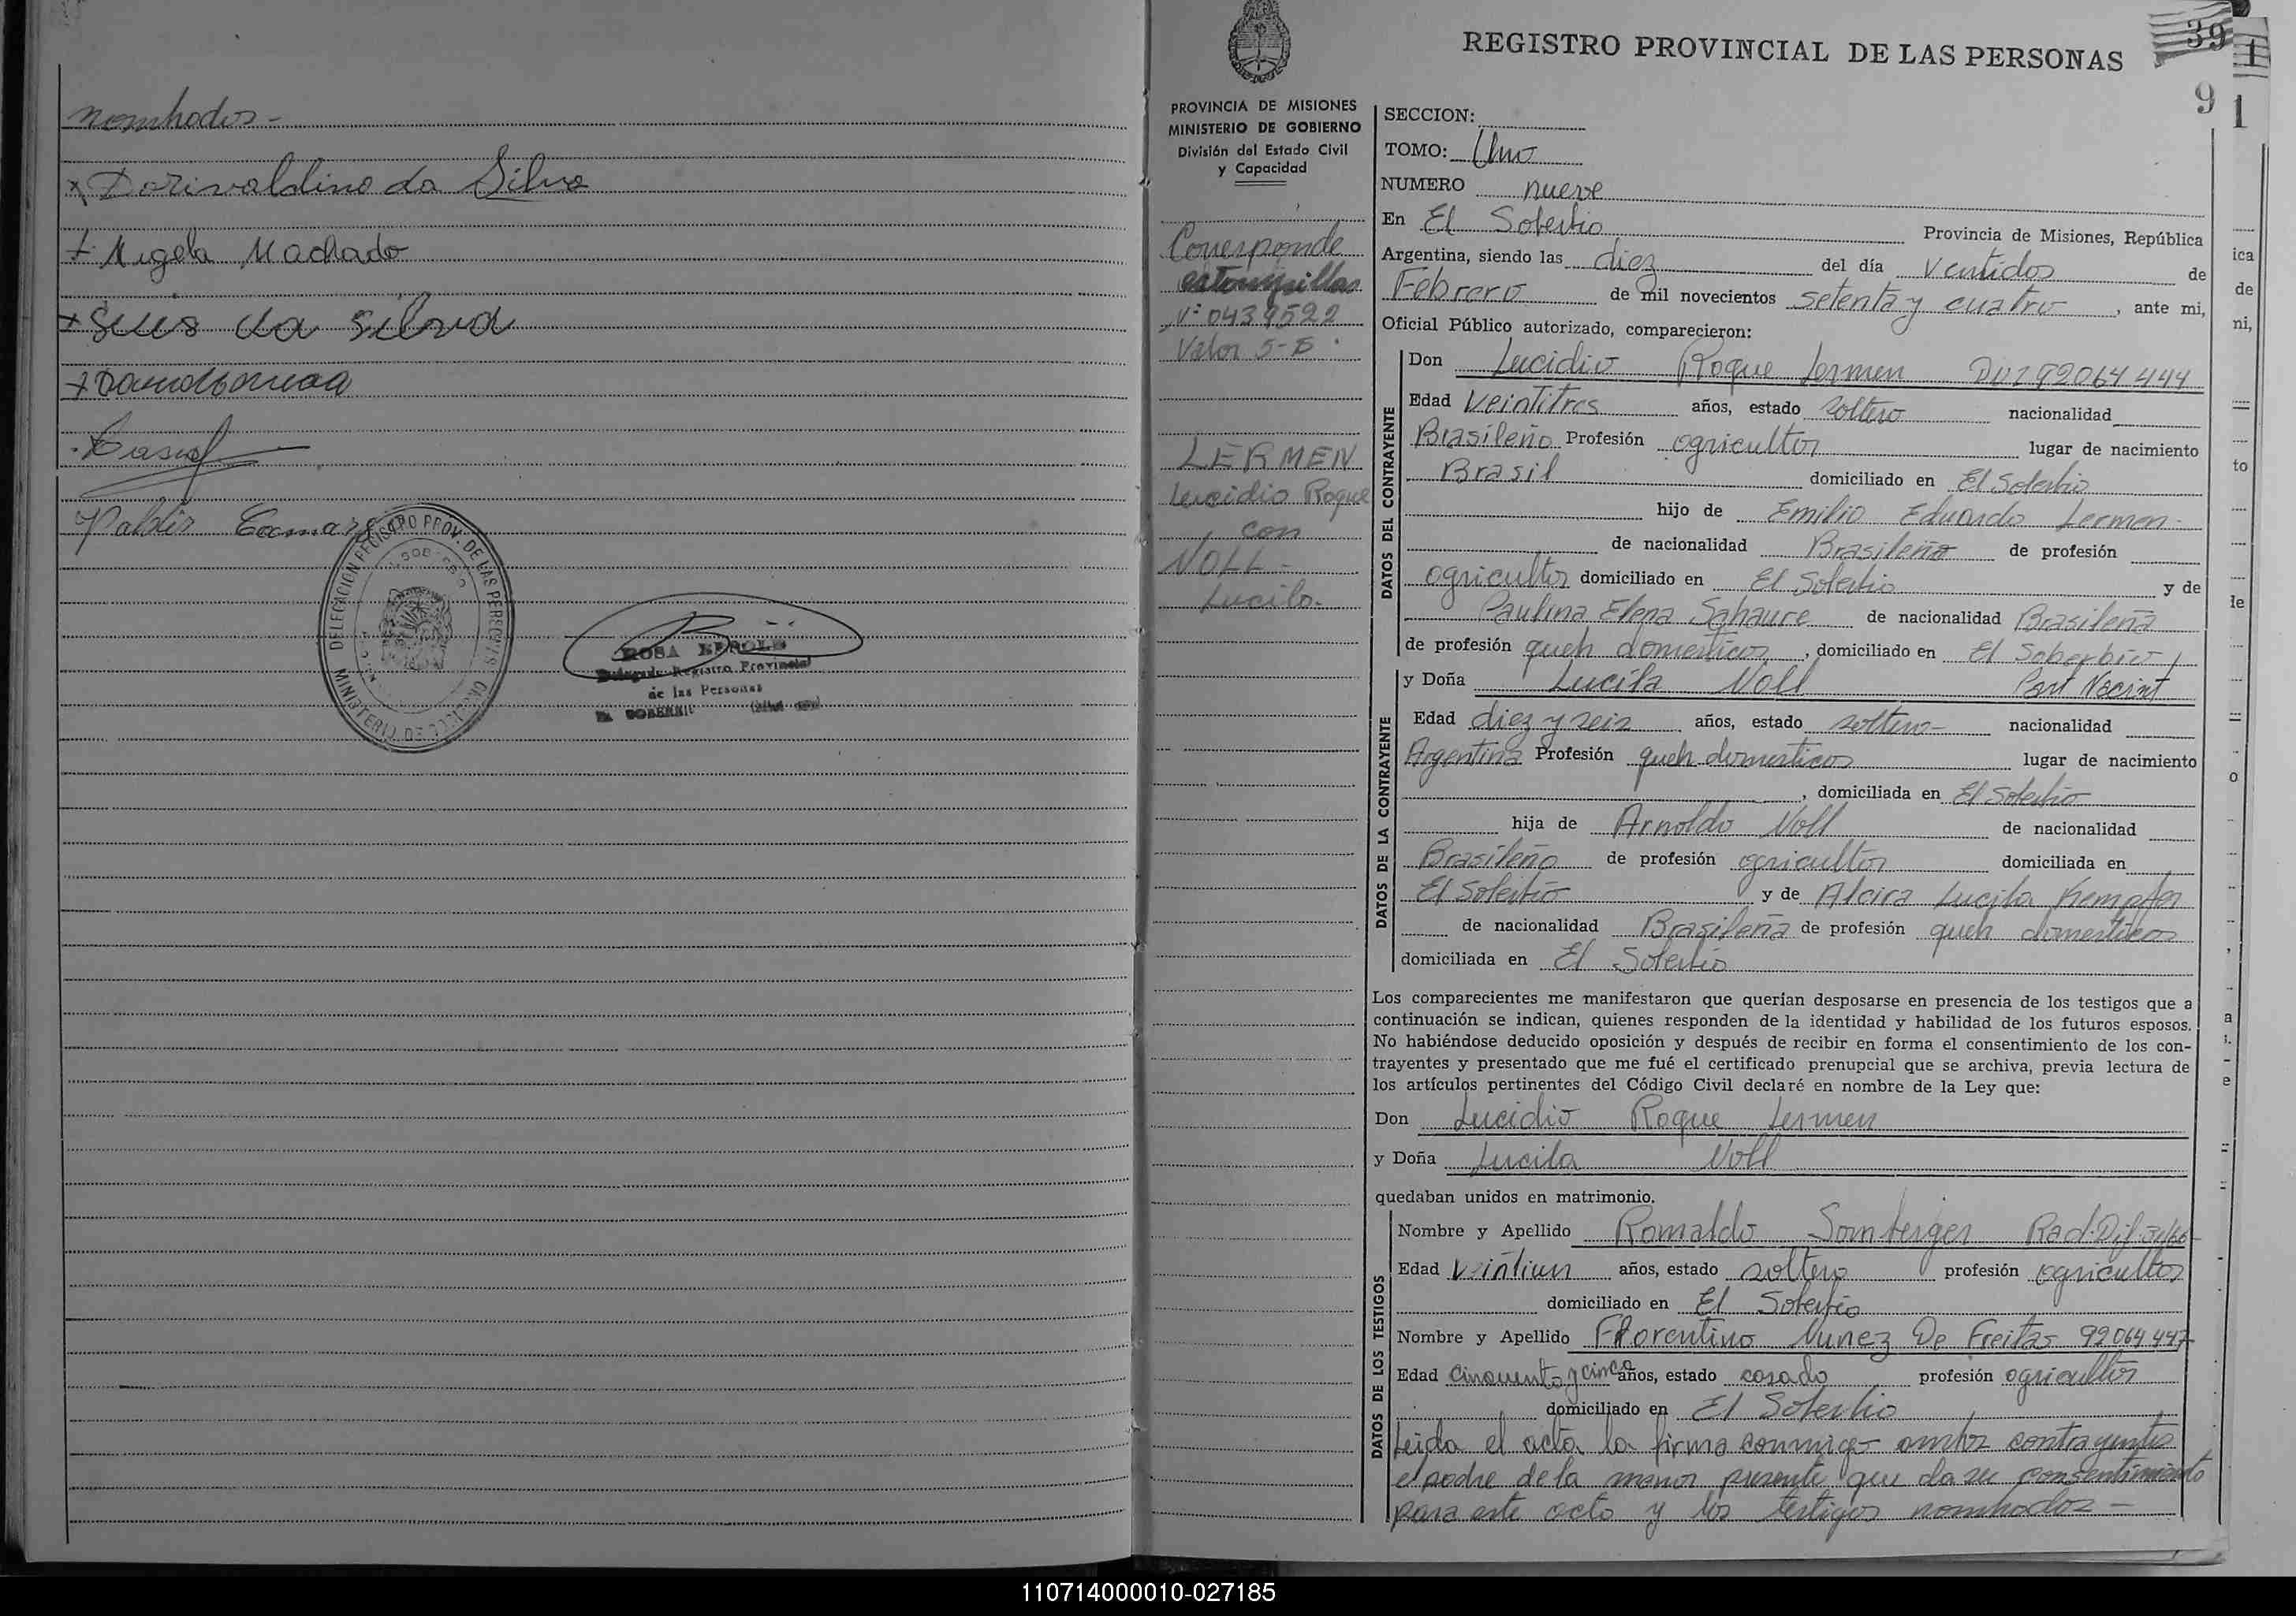 nombrados -
x Dorivaldino da Silva
x Nigela Machado
x Luis da Silva
Valdir Camargo
DELEGACION REGISTRO PROV. DE LAS PERSONAS
MINISTERIO DE GOBIERNO
ROSA
Delegada Registro Provincial
de las Personas
EL SOBERBIO
REGISTRO PROVINCIAL DE LAS PERSONAS
39
9
1
PROVINCIA DE MISIONES
MINISTERIO DE GOBIERNO
División del Estado Civil
y Capacidad
Corresponde
estampillas
Nº 0439522
Valor 5-
LERMEN
Lucidio Roque
con
NOLL -
Lucila.
SECCION:
TOMO: Uno
NUMERO nueve
En El Soberbio Provincia de Misiones, República
Argentina, siendo las diez del día Ventidos de
Febrero de mil novecientos setenta y cuatro, ante mi,
Oficial Público autorizado, comparecieron:
DATOS DEL CONTRAYENTE
Don Lucidio Roque Lermen DNI 92064444
Edad Veintitres años, estado soltero nacionalidad
Brasileño Profesión agricultor lugar de nacimiento
Brasil domiciliado en El Soberbio
hijo de Emilio Eduardo Lermen -
de nacionalidad Brasileño de profesión
agricultor domiciliado en El Soberbio y de
Paulina Elena Sahaure de nacionalidad Brasileña
de profesión queh domesticos, domiciliado en El Soberbio
DATOS DE LA CONTRAYENTE
y Doña Lucila Noll Part Nacimt
Edad diez y seis años, estado soltera - nacionalidad
Argentina Profesión queh domesticos lugar de nacimiento
, domiciliada en El Soberbio
hija de Arnoldo Noll de nacionalidad
Brasileño de profesión agricultor domiciliada en
El Soberbio y de Alcira Lucila Kempfer
de nacionalidad Brasileña de profesión queh domesticos
domiciliada en El Soberbio
Los comparecientes me manifestaron que querían desposarse en presencia de los testigos que a
continuación se indican, quienes responden de la identidad y habilidad de los futuros esposos.
No habiéndose deducido oposición y después de recibir en forma el consentimiento de los con-
trayentes y presentado que me fué el certificado prenupcial que se archiva, previa lectura de
los artículos pertinentes del Código Civil declaré en nombre de la Ley que:
Don Lucidio Roque Lermen
y Doña Lucila Noll
quedaban unidos en matrimonio.
DATOS DE LOS TESTIGOS
Nombre y Apellido Romaldo Somberger Rad. Dif. 34/66
Edad Veintiun años, estado soltero profesión agricultor
domiciliado en El Soberbio
Nombre y Apellido Florentino Nunez De Freitas 92064447
Edad Cincuenta y cinco años, estado casado profesión agricultor
domiciliado en El Soberbio
Leida el acta la firma conmigo ambos contrayentes
el padre de la menor presente que da su consentimiento
para este acto y los testigos nombrados -
110714000010-027185